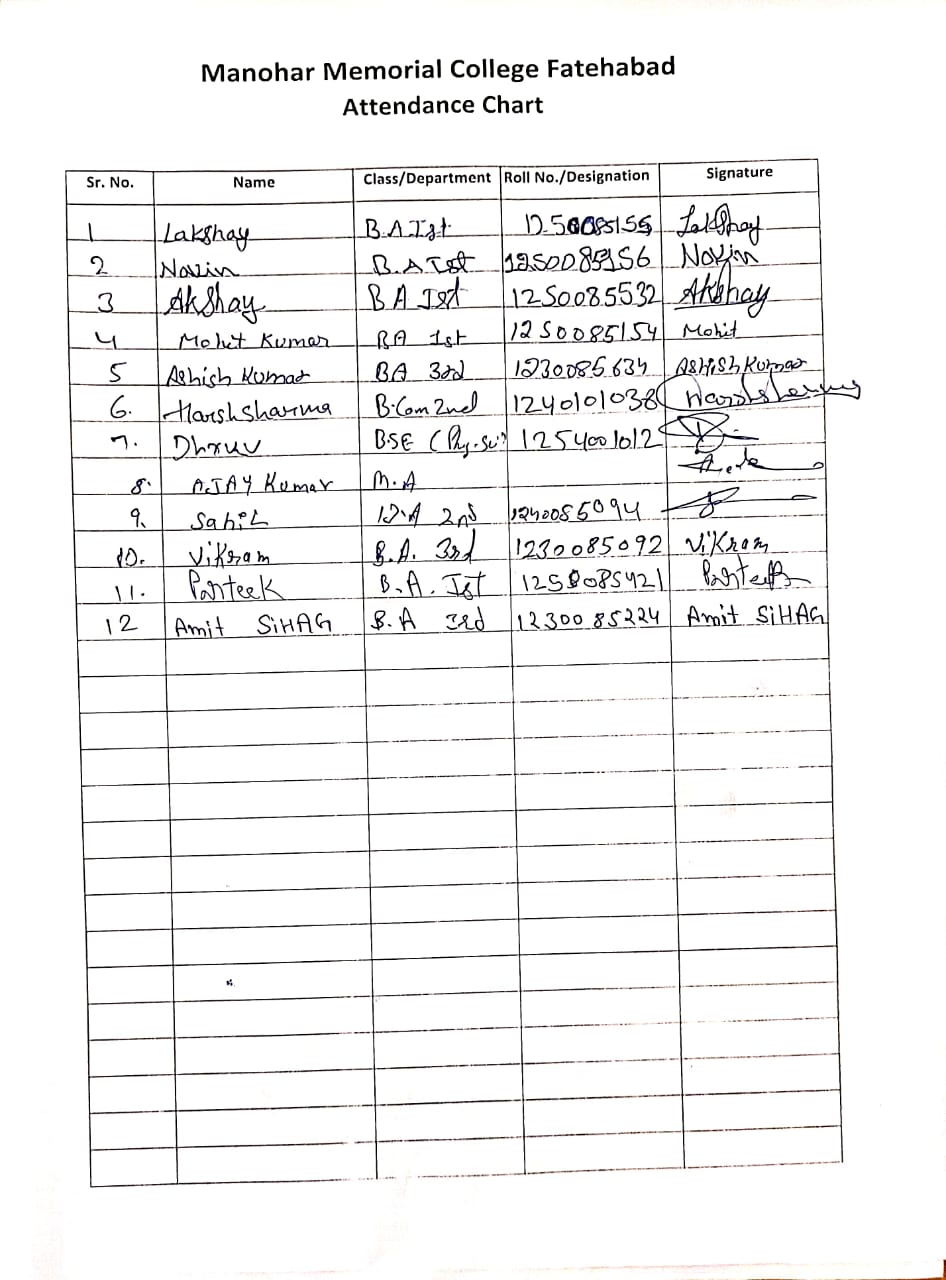 Manohar Memorial College Fatehabad
Attendance Chart
Sr. No. Name Class/Department Roll No./Designation Signature
1 Lakshay B.A Ist 1250085155 Lakshay
2 Navin B.A Ist 1250085156 Navin
3 Akshay BA Ist 1250085532 Akshay
4 Mohit Kumar BA 1st 1250085154 Mohit
5 Ashish Kumar BA 3rd 1230085634 Ashish Kumar
6. Harsh sharma B.Com 2nd 1240101038 Harsh sharma
7. Dhruv BSE (Phy. Sci) 1254001012
8. AJAY Kumar M.A
9. Sahil B.A 2nd 1240085094
10. Vikram B.A. 3rd 1230085092 Vikram
11. Parteek B.A. Ist 1250085421 Parteek
12 Amit SiHAG B.A 3rd 1230085224 Amit SiHAG